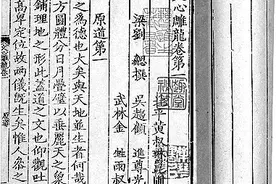 心雕龍卷第一
平黃叔琳
梁劉勰撰 吳趨顧進尊光
武林金甡雨叔
原道第一
之為德也大矣與天地並生者何哉
方圓體分日月疊璧以垂麗天之象
鋪理地之形此蓋道之文也仰觀吐
高卑定位故兩儀既生矣惟人參之